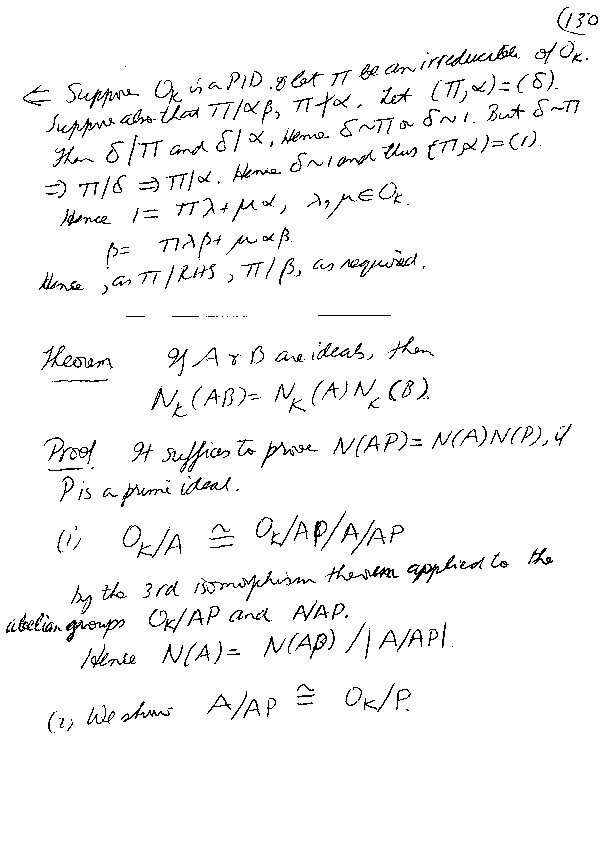 (130
⇐ Suppose O_K is a PID. & let π be an irreducible of O_K.
Suppose also that π/αβ, π∤α. Let (π,α)=(δ).
Then δ/π and δ/α. Hence δ~π or δ~1. But δ~π
⇒ π/δ ⇒ π/α. Hence δ~1 and thus (π,α)=(1).
Hence 1 = πλ+μα, λ,μ∈O_K.
β = πλβ+μαβ.
Hence, as π/RHS, π/β, as required.
Theorem If A & B are ideals, then
N_K(AB)=N_K(A)N_K(B).
Proof It suffices to prove N(AP)=N(A)N(P), if
P is a prime ideal.
(i) O_K/A ≅ O_K/AP/A/AP
by the 3rd isomorphism theorem applied to the
abelian groups O_K/AP and A/AP.
Hence N(A)= N(AP)/|A/AP|.
(2) We show A/AP ≅ O_K/P.